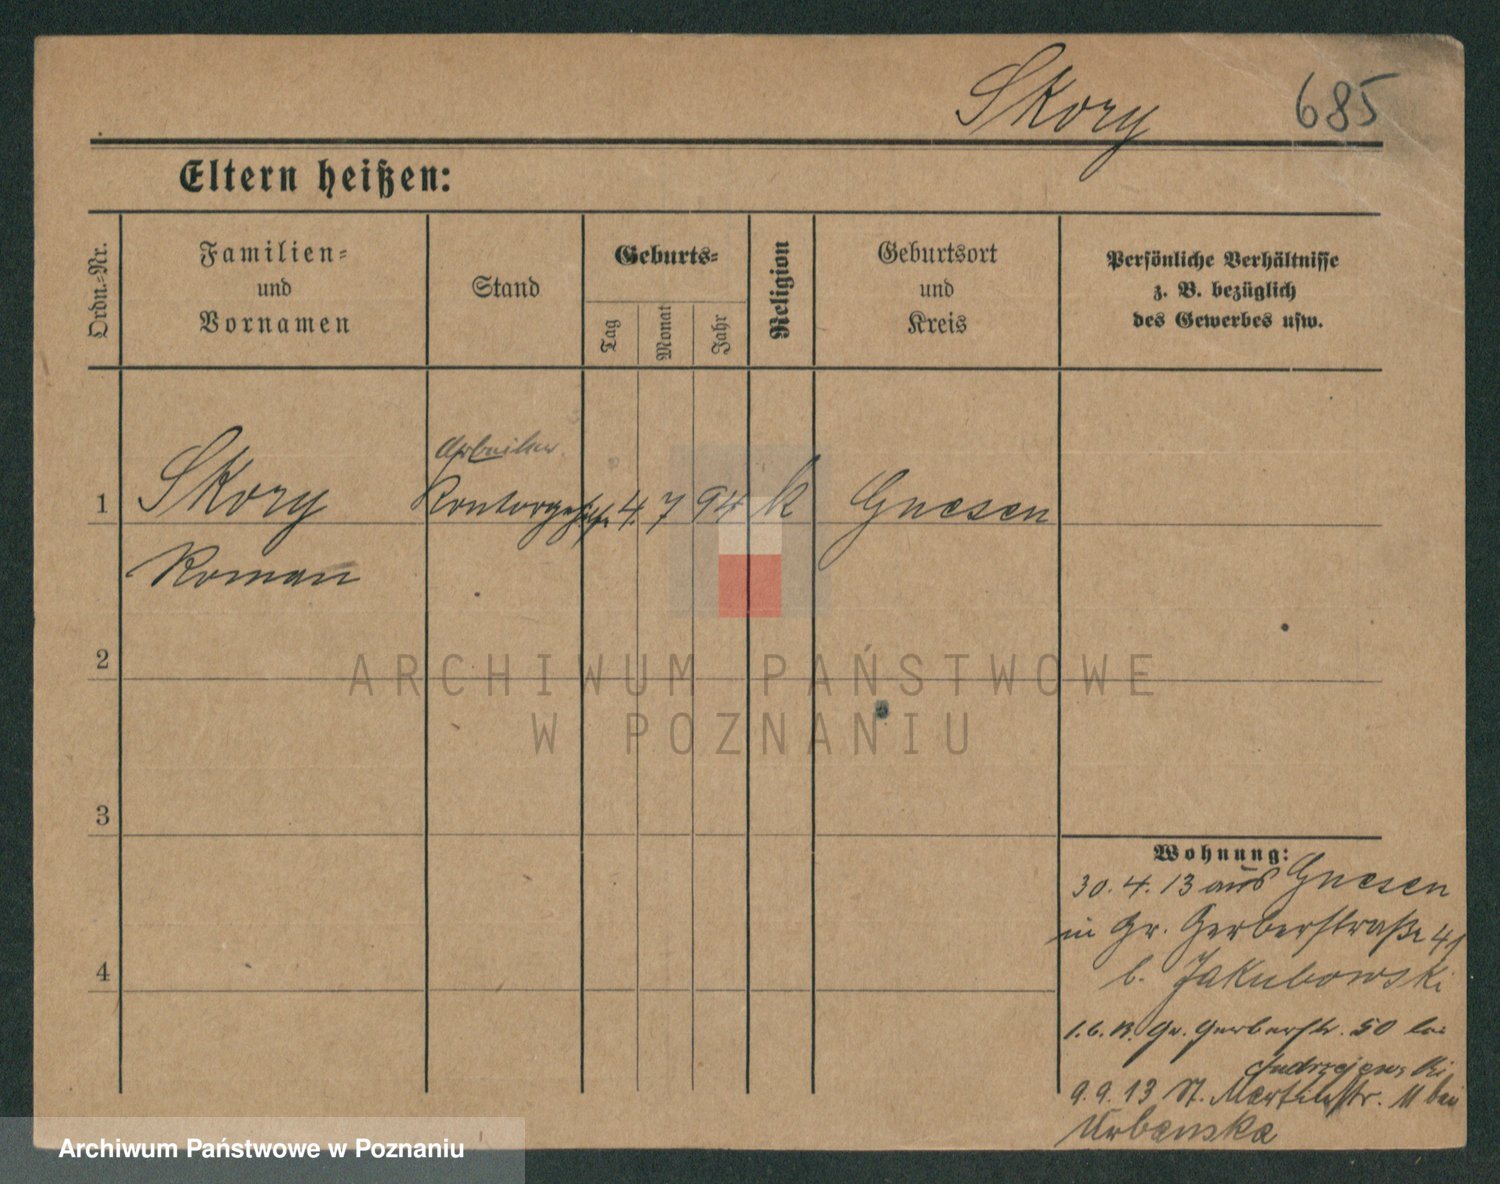 Skory 685
Eltern heißen:
Ordn.-Nr.
Familien-
und
Vornamen
Stand
Geburts-
Tag
Monat
Jahr
Religion
Geburtsort
und
Kreis
Persönliche Verhältnisse
z. B. bezüglich
des Gewerbes usw.
Arbeiter
1 Skory Kontorgehilfe 4. 7 94 k Gnesen
Roman
2
ARCHIWUM PAŃSTWOWE
W POZNANIU
3
Wohnung:
30. 4. 13 aus Gnesen
in Gr. Gerberstraße 41
4
b. Jakubowski
1.6.13. Gr. Gerberstr. 50 bei
Andrzejewski
9. 9. 13 St. Martinstr. 11 bei
Urbanska
Archiwum Państwowe w Poznaniu